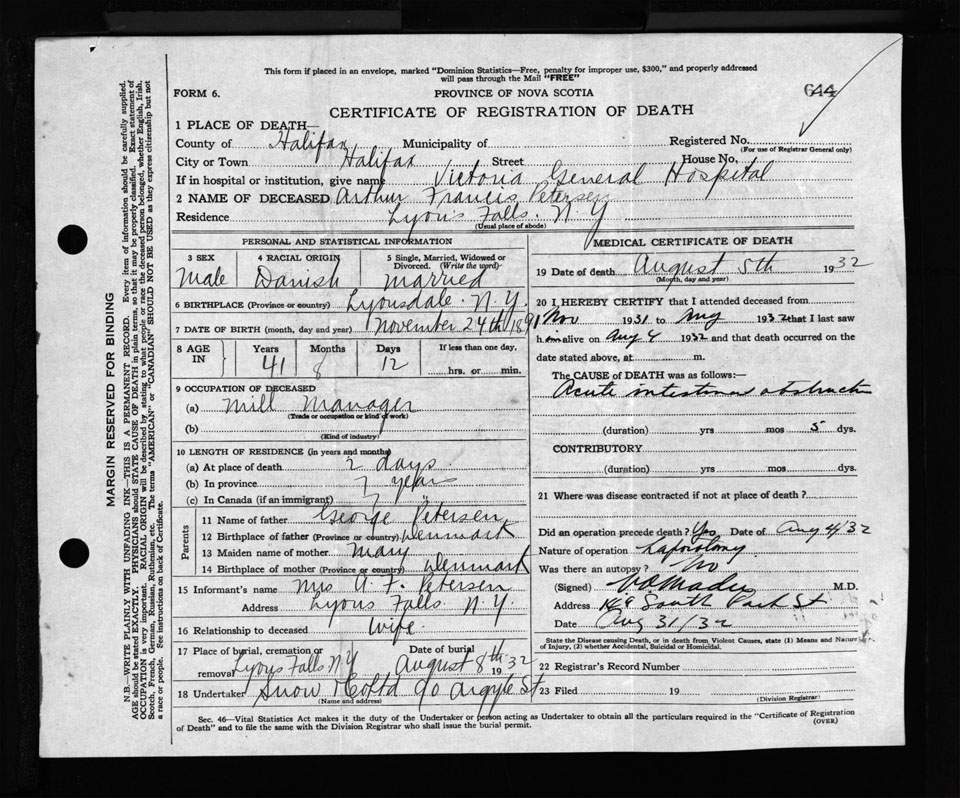 This form if placed in an envelope, marked "Dominion Statistics—Free, penalty for improper use, $300," and properly addressed
will pass through the Mail "FREE"
FORM 6.
PROVINCE OF NOVA SCOTIA
644
CERTIFICATE OF REGISTRATION OF DEATH
1 PLACE OF DEATH—
County of Halifax Municipality of Registered No.
(For use of Registrar General only)
City or Town Halifax Street House No.
If in hospital or institution, give name Victoria General Hospital
2 NAME OF DECEASED Arthur Francis Petersen
Residence Lyons Falls. N.Y
(Usual place of abode)
PERSONAL AND STATISTICAL INFORMATION
3 SEX 4 RACIAL ORIGIN 5 Single, Married, Widowed or
Divorced. (Write the word)
Male Danish Married
6 BIRTHPLACE (Province or country) Lyonsdale. N.Y.
7 DATE OF BIRTH (month, day and year) November 24th 1891
8 AGE IN Years Months Days If less than one day,
41 8 12 hrs. or min.
9 OCCUPATION OF DECEASED
(a) Mill Manager
(Trade or occupation or kind of work)
(b)
(Kind of industry)
10 LENGTH OF RESIDENCE (in years and months)
(a) At place of death 2 days
(b) In province 7 years
(c) In Canada (if an immigrant) 7 "
Parents
11 Name of father George Petersen
12 Birthplace of father (Province or country) Denmark
13 Maiden name of mother Mary
14 Birthplace of mother (Province or country) Denmark
15 Informant's name Mrs A. F. Petersen
Address Lyons Falls. N.Y.
16 Relationship to deceased Wife
17 Place of burial, cremation or Date of burial
removal Lyons Falls NY August 8th 1932
18 Undertaker Snow & Co Ltd 90 Argyle St
(Name and address)
MEDICAL CERTIFICATE OF DEATH
19 Date of death August 5th 1932
(Month, day and year)
20 I HEREBY CERTIFY that I attended deceased from
Nov 1931 to Aug 1932 that I last saw
him alive on Aug 4 1932 and that death occurred on the
date stated above, at m.
The CAUSE OF DEATH was as follows:—
Acute intestinal obstruction
(duration) yrs mos 5 dys.
CONTRIBUTORY
(duration) yrs mos dys.
21 Where was disease contracted if not at place of death?
Did an operation precede death? Yes Date of Aug 4/32
Nature of operation Laporotomy
Was there an autopsy? No
(Signed) M.D.
Address 169 South Park St.
Date Aug 31/32
State the Disease causing Death, or in death from Violent Causes, state (1) Means and Nature
of Injury, (2) whether Accidental, Suicidal or Homicidal.
22 Registrar's Record Number
23 Filed 19
(Division Registrar)
Sec. 46—Vital Statistics Act makes it the duty of the Undertaker or person acting as Undertaker to obtain all the particulars required in the "Certificate of Registration
of Death" and to file the same with the Division Registrar who shall issue the burial permit.
(OVER)
MARGIN RESERVED FOR BINDING
N.B.—WRITE PLAINLY WITH UNFADING INK—THIS IS A PERMANENT RECORD. Every item of information should be carefully supplied.
AGE should be stated EXACTLY. PHYSICIANS should STATE CAUSE OF DEATH in plain terms, so that it may be properly classified. Exact statement of
OCCUPATION is very important. RACIAL ORIGIN will be described by stating to what people or race the deceased person belonged, whether English, Irish,
Scotch, French, German, Russian, Ruthenian, etc. The terms "AMERICAN" or "CANADIAN" SHOULD NOT BE USED as they express citizenship but not
a race or people. See instructions on back of Certificate.